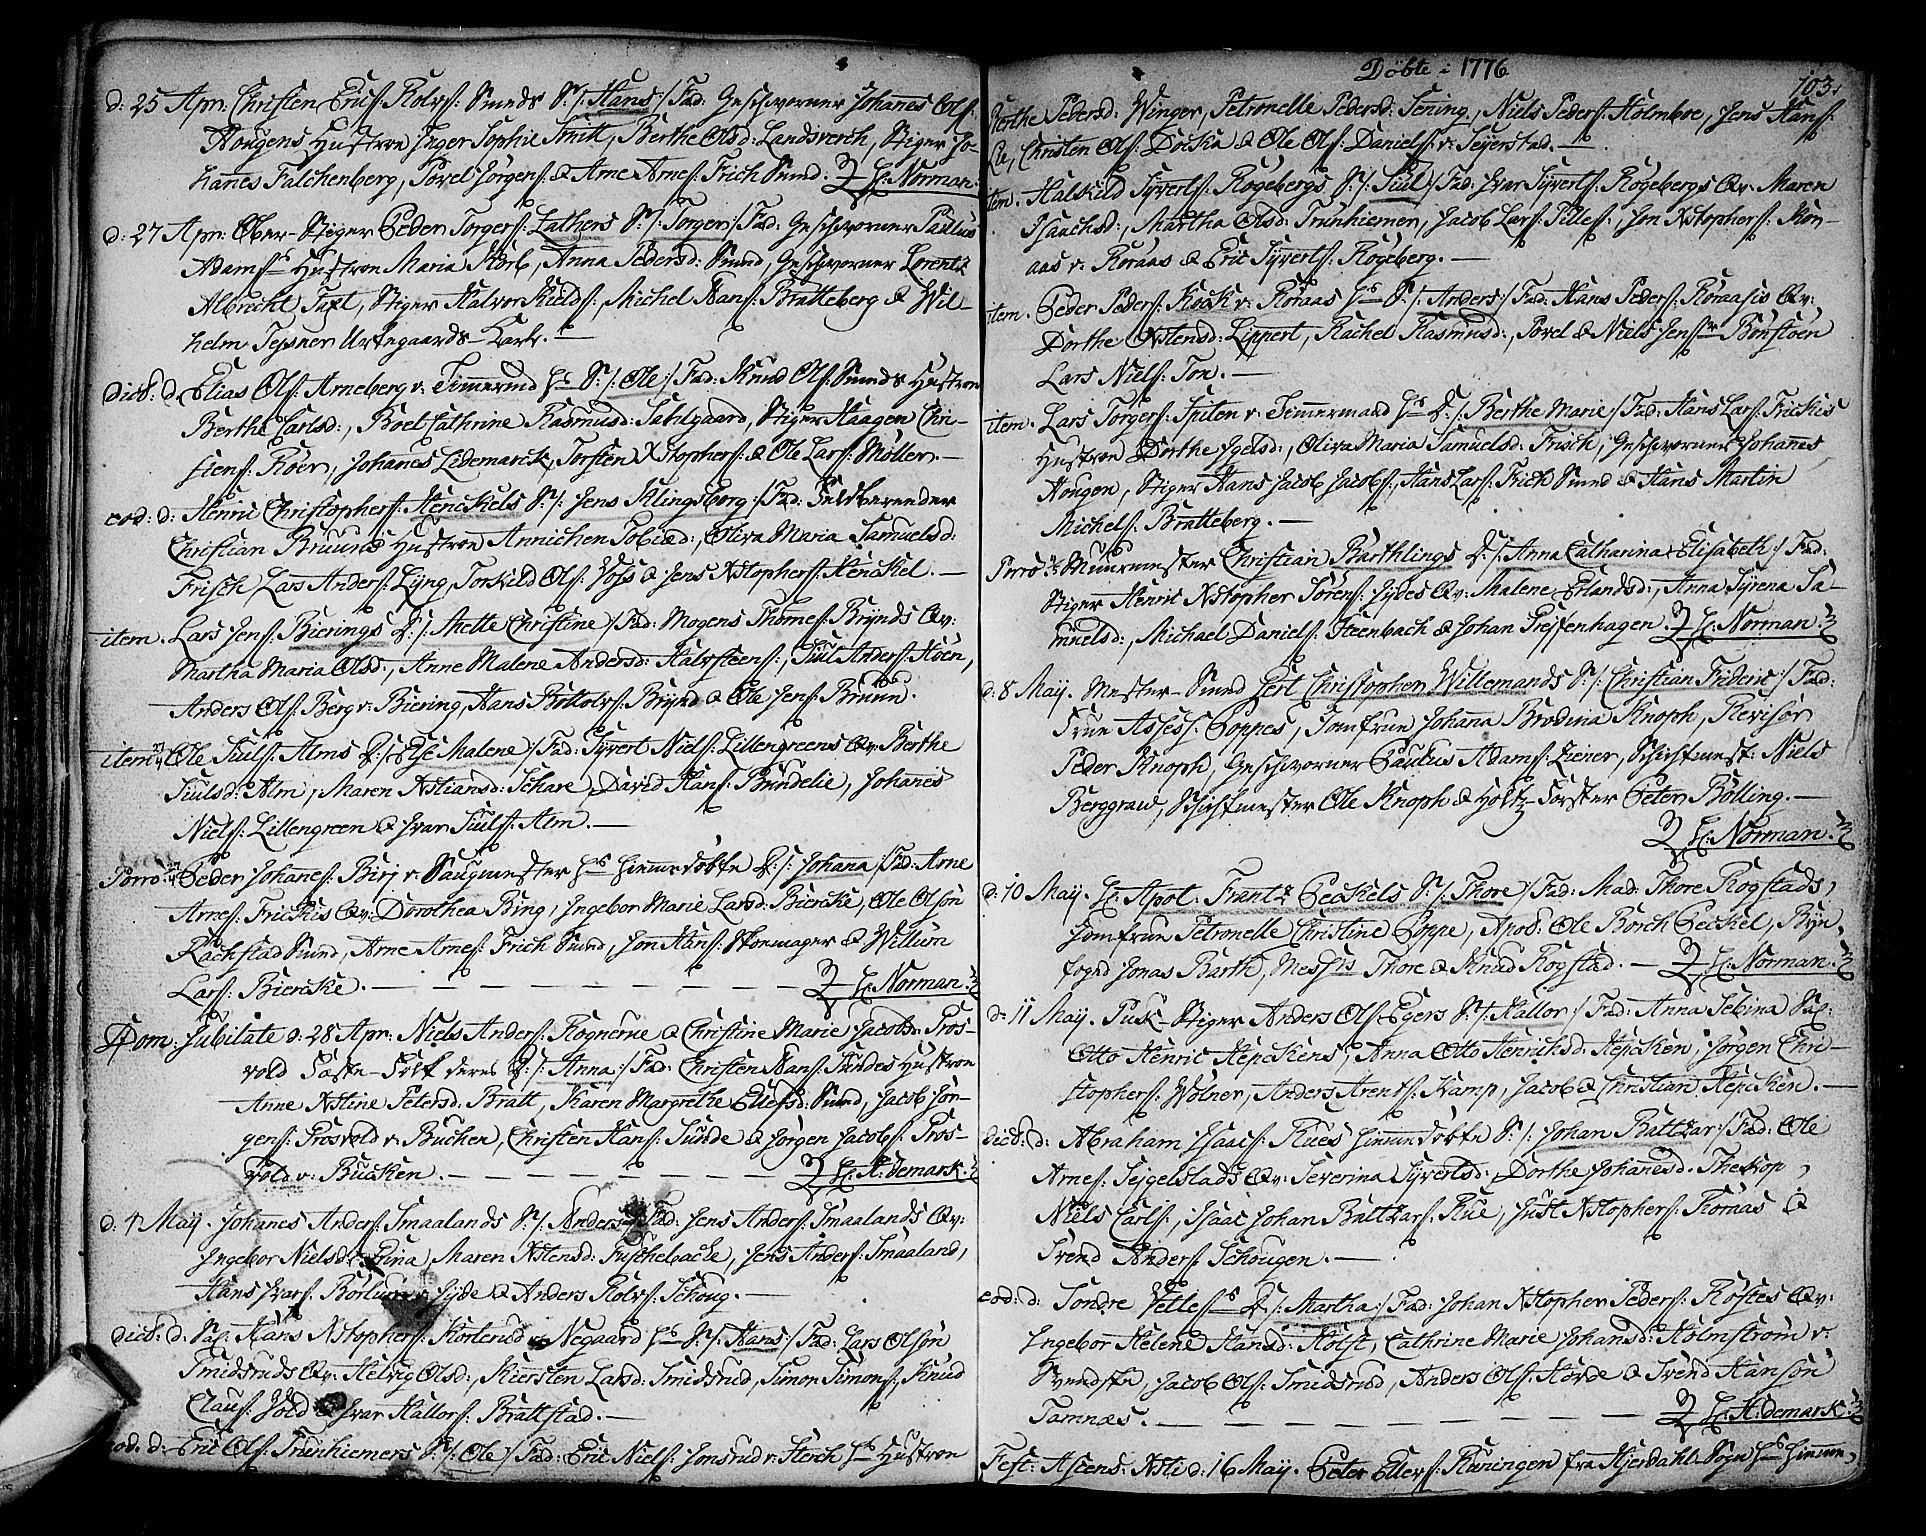 d: 25 Apr: Christen Ericſ: Rolvſ: Smeds S:/: Hans:/ Fad: Geschworner Johanes Olſ:
Hougens Hustroe Inger Sophie Smitt, Berthe Olsd: Landsverch, Stiger Jo-
hanes Falchenberg, Povel Jörgenſ: & Arne Arneſ: Frich Smed. H: Norman.
d: 27 Apr: Ober-Stiger Peder Torgerſ: Lathers S:/: Torger:/ Fad: Geschworner Paulus
Adamſ: Hustroe Maria Korb, Anna Pedersd: Smed, Geschworner Lorentz
Albrecht Taxt, Stiger Halvor Kieldſ:, Michel Hanſ: Bratteberg & Wil-
helm Teſner Urtegaards-Karl. —
dict: d. Elias Olſ: Arneberg v: Timmerud Hs S:/: Ole:/ Fad: Knud Olſ: Smeds Hustroe
Berthe Carlsd:, Boel Cathrine Rasmusd: Sahlgaard, Stiger Haagen Chri-
stenſ: Roer, Johanes Lidemarck, Torsten Xstopherſ: & Ole Larſ: Möller. —
eod: d: Henric Christopherſ: Henckels S:/: Jens Klingsborg:/ Fad: Feldbereder
Christian Bruuns Hustroe Annichen Tobiæd:, Oliva Maria Samuelsd:
Frisch, Lars Anderſ: Lyng, Torkild Olſ: Voſs & Jens Xstopherſ: Henckel. —
item. Lars Jenſ: Bierings D:/: Mette Christine:/ Fad: Mogens Thomeſ: Brynds Qv:
Martha Maria Olsd:, Anne Malene Andersd: Halvsteenſ:, Juul Anderſ: Hoen,
Anders Olſ: Berg v: Biering, Hans Bottolvſ: Brynd & Ole Jenſ: Bruun.
item 27/4 Ole Juulſ: Alms D:/: Else Malene:/ Fad: Syvert Nielſ: Lillengreens Qv: Berthe
Juulsd: Alm, Maren Xstiansd: Schare, David Hanſ: Bundelie, Johanes
Nielſ: Lillengreen & Ivar Juulſ: Alm. —
Porro 27/4 Peder Johaneſ: Birj v: Saugmester Hs hiemmedöbte D:/: Johana:/ Fad: Arne
Arneſ: Frickis Qv: Dorothea Bing, Ingebor Marie Larsd: Biercke, Ole Olsön
Rachstad Smed, Arne Arneſ: Frich Smed, Jon Hanſ: Skomager & Willum
Larſ: Biercke. — H: Norman.
Dom: Jubilate d: 28 Apr: Niels Anderſ: Rognerue & Christine Marie Jacobsd: Pros-
vold Fæste-Folk deres D:/: Anna:/ Fad: Christen Hanſ: Sundes Hustroe
Anne Xstine Petersd: Bratt, Karen Margrethe Ellefsd: Smed, Jacob Jör-
genſ: Prosvold v: Buchen, Christen Hanſ: Sunde & Jörgen Jacobſ: Pros-
vold v: Bucken. — H: A: demark.
d. 4 May. Johanes Anderſ: Smaalands S:/: Anders:/ Fad: Jens Anderſ: Smaalands Qv:
Ingebor Nielsd: Brina, Maren Xstensd: Fuschelbacke, Jens Anderſ: Smaaland,
Hans Ivarſ: Borlum v: Hyde & Anders Rolvſ: Schoug. —
dict: d. Sal: Hans Xstopherſ: Korlerud v: Negaard Hs S:/: Hans:/ Fad: Lars Olsön
Smidsruds Qv: Helvig Olsd:, Kiersten Larsd: Smidsrud, Simon Simonſ:, Knud
Clauſ: Jold & Ivar Hallorſ: Brattstad. —
eod: d: Eric Olſ: Trunhiemers S:/: Ole:/ Fad: Eric Nielſ: Jonsrud v: Sterch Hs Hustroe
Döbte i 1776
103.
Berthe Pedersd: Winger, Petronelle Pedersd: Tening, Niels Pederſ: Holmboe, Jens Hanſ:
Lie, Christen Olſ: Docka & Ole Olſ: Danielſ: v: Seyerstad. —
item. Halskild Syvertſ: Rogebergs S:/: Juul:/ Fad: Ivar Syvertſ: Rogebergs Qv: Maren
Isaachsd:, Martha Olsd: Trunhiemer, Jacob Larſ: Tilleſ:, Jon Xstopherſ: Kon-
aas v: Roraas & Eric Syvertſ: Rogeberg. —
item. Peder Pederſ: Kock v: Roraas Hs S:/: Anders:/ Fad: Hans Pederſ: Roraasis Qv:
Dorthe Xstensd: Lippert, Rachel Rasmusd:, Povel & Niels Jenſ: Bonstoen
Lars Nielſ: Ton. —
item. Lars Torgerſ: Spiten v: Timmermand Hs D:/: Berthe Marie:/ Fad: Hans Larſ: Frickis
Hustroe Dorthe Igelsd:, Oliva Maria Samuelsd: Frisch, Geschworner Johanes
Hougen, Stiger Hans Jacob Jacobſ:, Hans Larſ: Frich Smed & Hans Martin
Michelſ: Bratteberg. —
Porro Muurmester Christian Barthlings D:/: Anna Catharina Elisabeth:/ Fad:
Stiger Henric Xstopher Sörenſ: Jydes Qv: Malene Erlandsd:, Anna Syrena Sa-
muelsd:, Michael Danielſ: Steenbach & Johan Treffenhagen. H: Norman.
d: 8 May. Mester-Smed Gert Christopher Willemands S:/: Christian Frideric:/ Fad:
Frue Assesſ: Poppes, Jomfrue Johana Brodina Knoph, Revisor
Peder Knoph, Geschworner Paulus Adamſ: Ziener, Schichtmest: Niels
Berggraw, Schichtmester Ole Knoph & Holtz-Forster Peter Bölling. —
H: Norman.
d: 10 May. H: Apot. Frantz Peckels S:/: Thore:/ Fad: Mad: Thore Rogstads,
Jomfrue Petronelle Christine Poppe, Apod: Ole Borch Peckel, Byn-
foged Jonas Barth, Mesſrs Thore & Knud Rogstad. — H: Norman.
d: 11 May. Puck-Stiger Anders Olſ: Egers S:/: Hallor:/ Fad: Anna Sebina Sal:
Otto Henric Hepckens, Anna Otto Henrichsd: Hepcken, Jörgen Chri-
stopherſ: Wölner, Anders Arentſ: Kamp, Jacob & Christian Hepcken. —
dict: d: Abraham Isaacſ: Rues hiemmedöbte S:/: Johan Baltzar:/ Fad: Ole
Arneſ: Seigelstads Qv: Severina Syvertsd:, Dorthe Johanesd: Theskop,
Niels Carlſ:, Isaac Johan Baltzarſ: Rue, Just Xstopherſ: Romas &
Svend Anderſ: Schougen. —
eod: d: Tondre Velleſ: D:/: Martha:/ Fad: Johan Xstopher Pederſ: Röstes Qv:
Ingebor Helene Hansd: Holst, Cathrine Marie Johansd: Holmström v:
Jacob Olſ: Smidsrud, Anders Olſ: Horde & Svend Hansön
Tamnæs. — H: A: demark.
Fest: Ascens: Xsti d: 16 May. Peter Ellerſ: Runingen fra Hierdahls Sogn Hs hiemme-